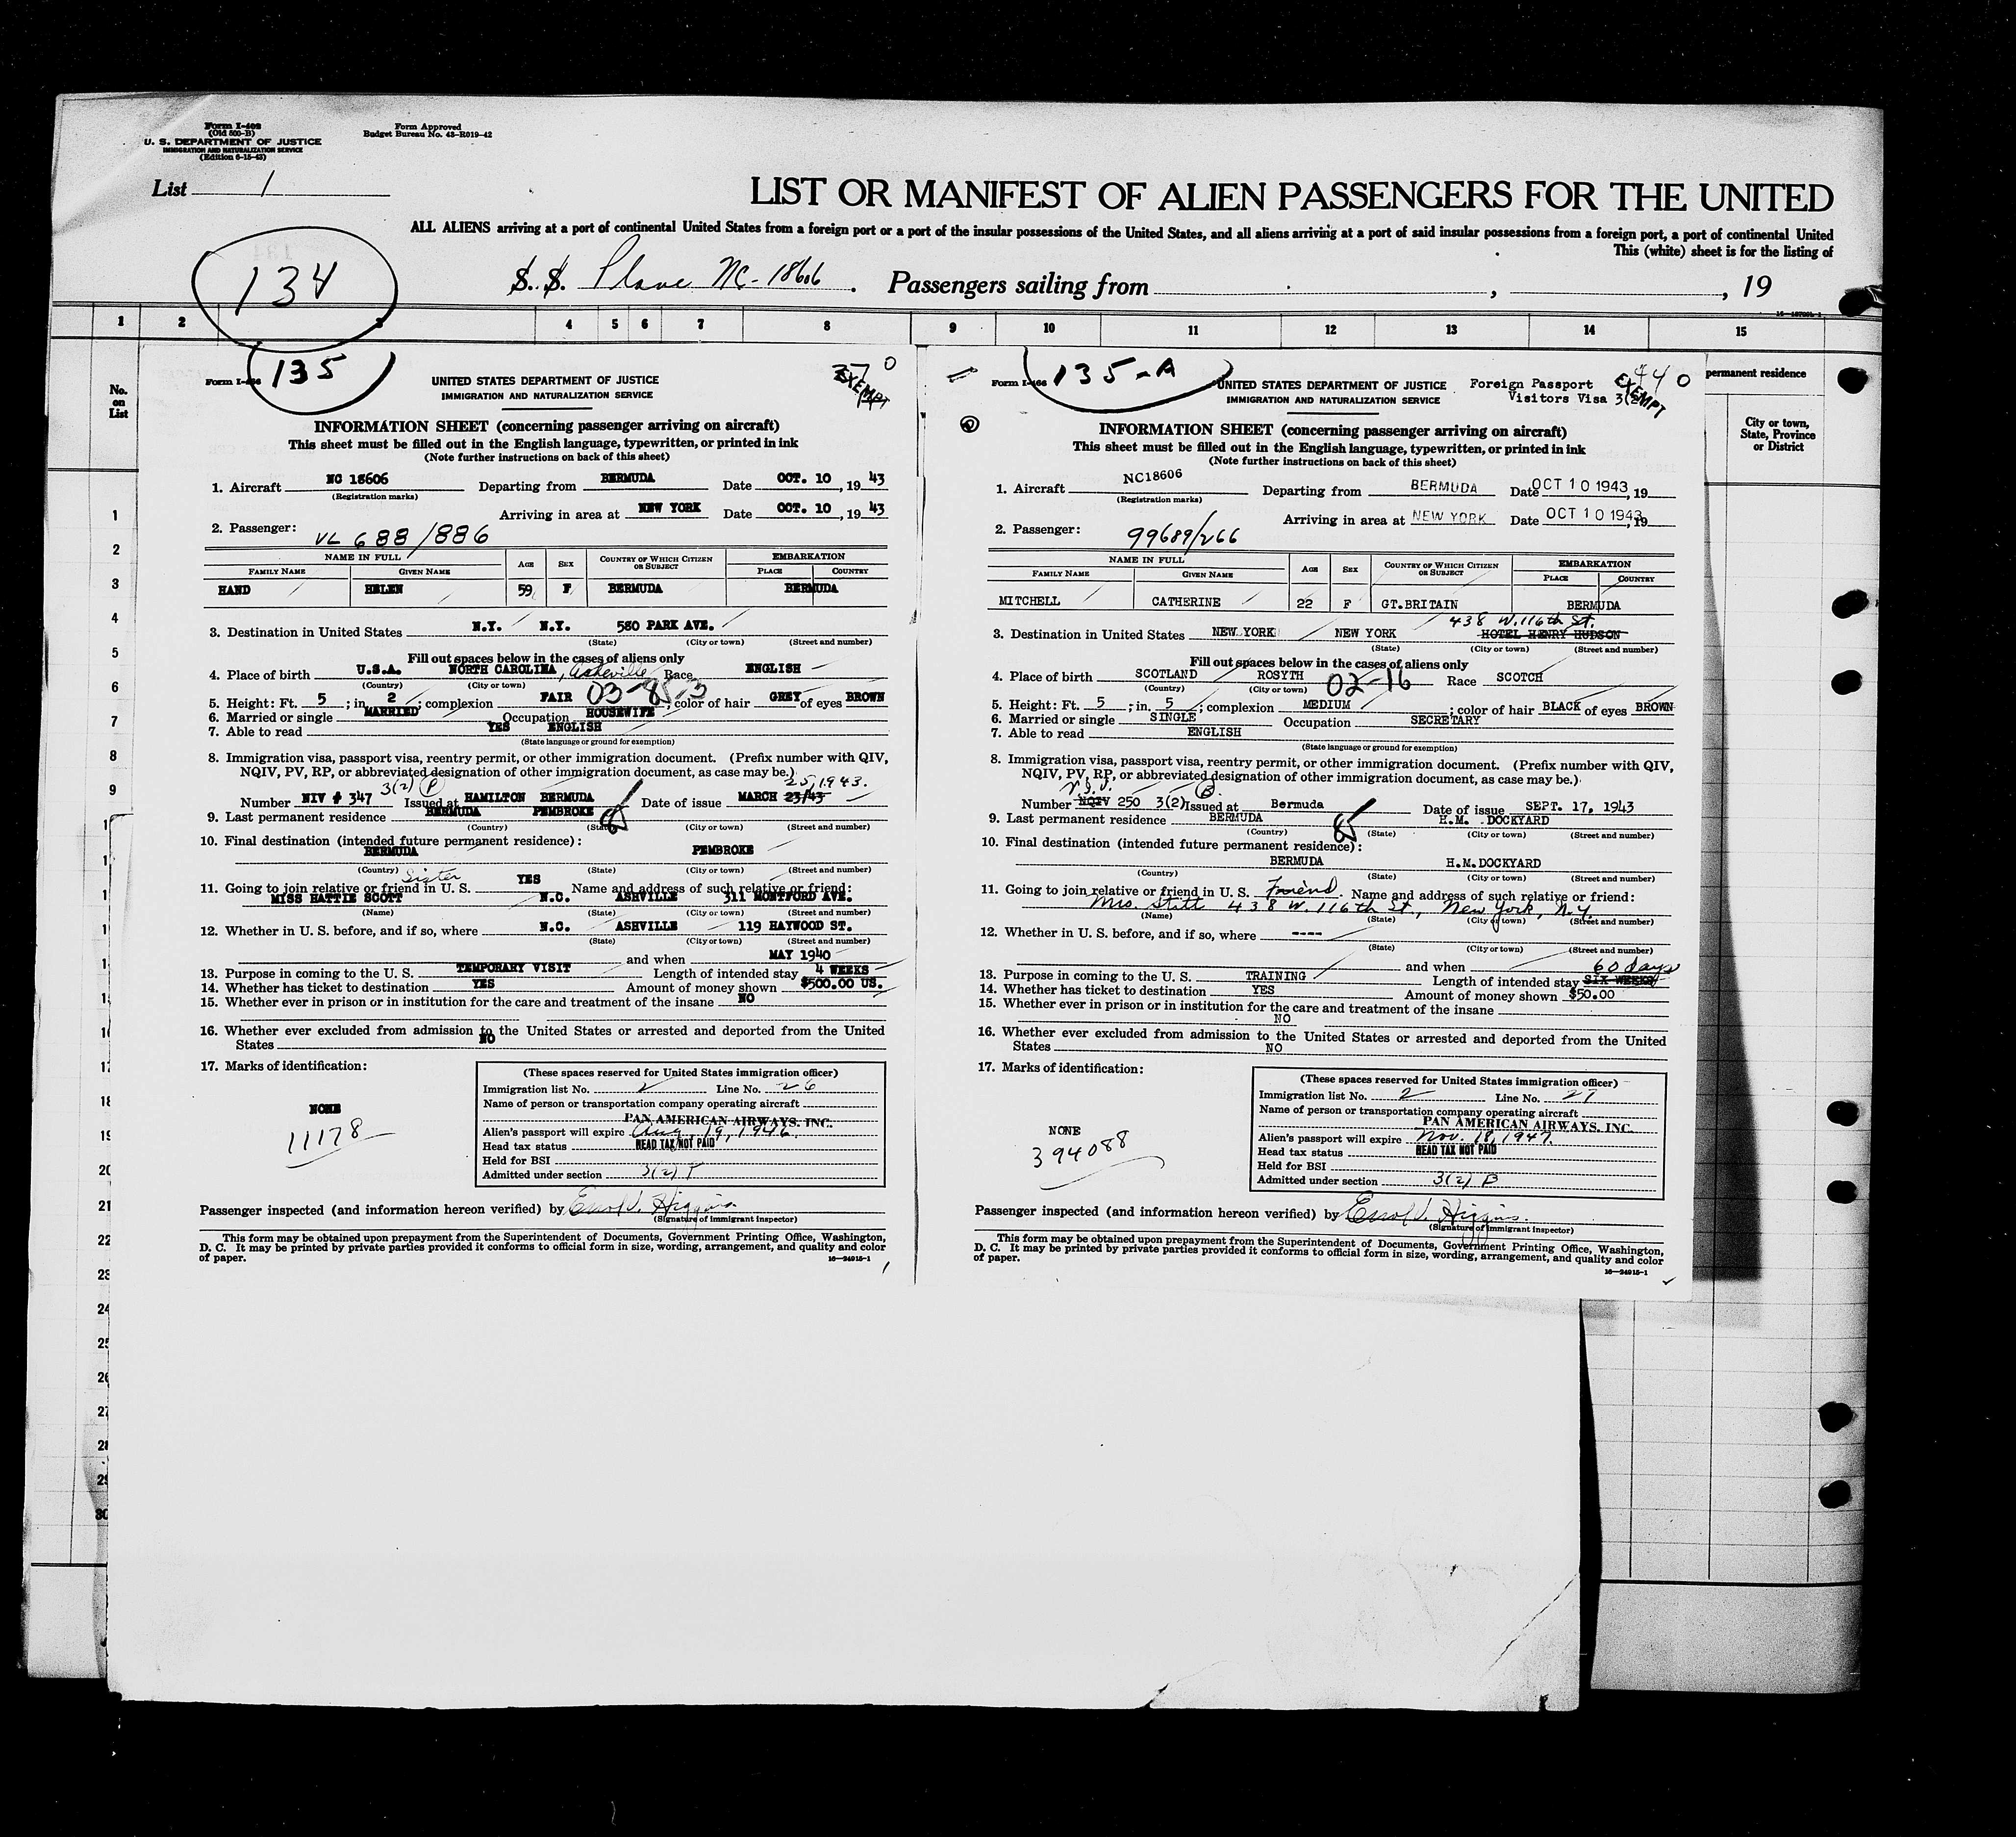 Form I-408
(Old 500-B)
U. S. DEPARTMENT OF JUSTICE
IMMIGRATION AND NATURALIZATION SERVICE
(Edition 6-15-43)
Form Approved
Budget Bureau No. 43-R019-42
List 1
LIST OR MANIFEST OF ALIEN PASSENGERS FOR THE UNITED
ALL ALIENS arriving at a port of continental United States from a foreign port or a port of the insular possessions of the United States, and all aliens arriving at a port of said insular possessions from a foreign port, a port of continental United
This (white) sheet is for the listing of
134
S. S. Plane NC-18606. Passengers sailing from , , 19
1 2 3 4 5 6 7 8 9 10 11 12 13 14 15
No. on List
permanent residence
City or town, State, Province or District
1
2
3
4
5
6
7
8
9
18
19
20
21
22
23
24
25
26
27
28
29
30
Form I-466
135
UNITED STATES DEPARTMENT OF JUSTICE
IMMIGRATION AND NATURALIZATION SERVICE
EXEMPT
INFORMATION SHEET (concerning passenger arriving on aircraft)
This sheet must be filled out in the English language, typewritten, or printed in ink
(Note further instructions on back of this sheet)
1. Aircraft NC 18606 Departing from BERMUDA Date OCT. 10, 19 43
(Registration marks)
Arriving in area at NEW YORK Date OCT. 10, 19 43
2. Passenger: VL 688/886
NAME IN FULL AGE SEX COUNTRY OF WHICH CITIZEN OR SUBJECT EMBARKATION
FAMILY NAME GIVEN NAME PLACE COUNTRY
HAND HELEN 59 F BERMUDA BERMUDA
3. Destination in United States N.Y. N.Y. 580 PARK AVE.
(State) (City or town) (Street and number)
Fill out spaces below in the cases of aliens only
4. Place of birth U.S.A. NORTH CAROLINA, Asheville Race ENGLISH
(Country) (City or town)
5. Height: Ft. 5; in. 2; complexion FAIR; color of hair GREY of eyes BROWN
6. Married or single MARRIED Occupation HOUSEWIFE
7. Able to read YES ENGLISH
(State language or ground for exemption)
8. Immigration visa, passport visa, reentry permit, or other immigration document. (Prefix number with QIV,
NQIV, PV, RP, or abbreviated designation of other immigration document, as case may be.)
3(2) P 25, 1943.
Number NIV # 347 Issued at HAMILTON BERMUDA Date of issue MARCH 23/43
9. Last permanent residence BERMUDA PEMBROKE
(Country) (State) (City or town) (Street and number)
10. Final destination (intended future permanent residence):
BERMUDA PEMBROKE
(Country) (State) (City or town) (Street and number)
Sister
11. Going to join relative or friend in U. S. YES Name and address of such relative or friend:
MISS HATTIE SCOTT N.C. ASHVILLE 311 MONTFORD AVE.
(Name) (State) (City or town) (Street and number)
12. Whether in U. S. before, and if so, where N.C. ASHVILLE 119 HAYWOOD ST.
(State) (City or town) (Street and number)
and when MAY 1940
13. Purpose in coming to the U. S. TEMPORARY VISIT Length of intended stay 4 WEEKS
14. Whether has ticket to destination YES Amount of money shown $500.00 US.
15. Whether ever in prison or in institution for the care and treatment of the insane NO
16. Whether ever excluded from admission to the United States or arrested and deported from the United
States NO
17. Marks of identification:
NONE
11178
(These spaces reserved for United States immigration officer)
Immigration list No. 2 Line No. 26
Name of person or transportation company operating aircraft
PAN AMERICAN AIRWAYS, INC.
Alien's passport will expire Aug. 19, 1946.
Head tax status HEAD TAX NOT PAID
Held for BSI
Admitted under section 3(2) P
Passenger inspected (and information hereon verified) by Errol J. Higgins.
(Signature of immigrant inspector)
This form may be obtained upon prepayment from the Superintendent of Documents, Government Printing Office, Washington,
D. C. It may be printed by private parties provided it conforms to official form in size, wording, arrangement, and quality and color
of paper. 16—24915-1
Form I-466
135-A
UNITED STATES DEPARTMENT OF JUSTICE
IMMIGRATION AND NATURALIZATION SERVICE
Foreign Passport
Visitors Visa 3(2)
440
EXEMPT
INFORMATION SHEET (concerning passenger arriving on aircraft)
This sheet must be filled out in the English language, typewritten, or printed in ink
(Note further instructions on back of this sheet)
1. Aircraft NC18606 Departing from BERMUDA Date OCT 10 1943, 19
(Registration marks)
Arriving in area at NEW YORK Date OCT 10 1943, 19
2. Passenger: 99689/266
NAME IN FULL AGE SEX COUNTRY OF WHICH CITIZEN OR SUBJECT EMBARKATION
FAMILY NAME GIVEN NAME PLACE COUNTRY
MITCHELL CATHERINE 22 F GT.BRITAIN BERMUDA
438 W. 116th St.
3. Destination in United States NEW YORK NEW YORK HOTEL HENRY HUDSON
(State) (City or town) (Street and number)
Fill out spaces below in the cases of aliens only
4. Place of birth SCOTLAND ROSYTH 02-16 Race SCOTCH
(Country) (City or town)
5. Height: Ft. 5; in. 5; complexion MEDIUM; color of hair BLACK of eyes BROWN
6. Married or single SINGLE Occupation SECRETARY
7. Able to read ENGLISH
(State language or ground for exemption)
8. Immigration visa, passport visa, reentry permit, or other immigration document. (Prefix number with QIV,
NQIV, PV, RP, or abbreviated designation of other immigration document, as case may be.)
Number NQIV 250 3(2) Issued at Bermuda Date of issue SEPT. 17, 1943
9. Last permanent residence BERMUDA H.M. DOCKYARD
(Country) (State) (City or town) (Street and number)
10. Final destination (intended future permanent residence):
BERMUDA H.M.DOCKYARD
(Country) (State) (City or town) (Street and number)
11. Going to join relative or friend in U. S. Friend. Name and address of such relative or friend:
Mrs. Stitt 438 W. 116th St., New York, N.Y.
(Name) (State) (City or town) (Street and number)
12. Whether in U. S. before, and if so, where ----
(State) (City or town) (Street and number)
and when
60 days
13. Purpose in coming to the U. S. TRAINING Length of intended stay SIX WEEKS
14. Whether has ticket to destination YES Amount of money shown $50.00
15. Whether ever in prison or in institution for the care and treatment of the insane
NO
16. Whether ever excluded from admission to the United States or arrested and deported from the United
States NO
17. Marks of identification:
NONE
394088
(These spaces reserved for United States immigration officer)
Immigration list No. 2 Line No. 27
Name of person or transportation company operating aircraft
PAN AMERICAN AIRWAYS, INC.
Alien's passport will expire Nov. 18, 1947.
Head tax status HEAD TAX NOT PAID
Held for BSI
Admitted under section 3(2) B
Passenger inspected (and information hereon verified) by Errol J. Higgins.
(Signature of immigrant inspector)
This form may be obtained upon prepayment from the Superintendent of Documents, Government Printing Office, Washington,
D. C. It may be printed by private parties provided it conforms to official form in size, wording, arrangement, and quality and color
of paper. 16—24915-1